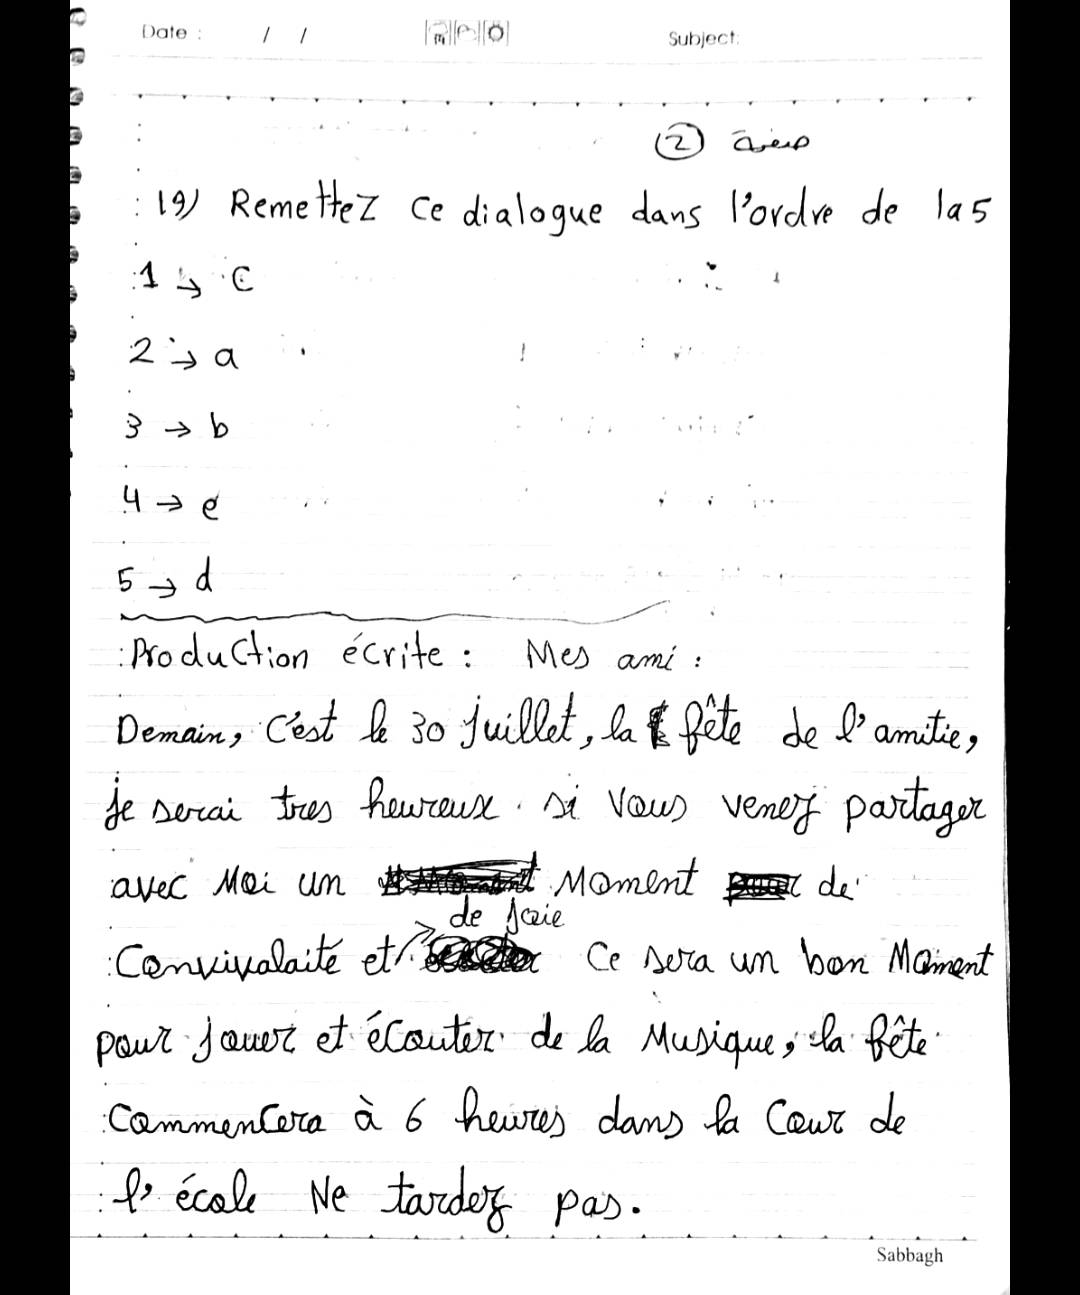 Date : / /
Subject:
صفحة ②
19) Remettez ce dialogue dans l'ordre de la 5
1 → C
2 → a
3 → b
4 → e
5 → d
Production écrite : Mes ami :
Demain, C'est le 30 juillet, la fête de l'amitie,
je serai tres heureux. si vous venez partager
avec Moi un Moment de
de joie
Convivalaité et ce sera un bon Moment
pour jouer et écouter de la Musique, la fête
Commencera à 6 heures dans la Cour de
l'école Ne tardez pas.
Sabbagh